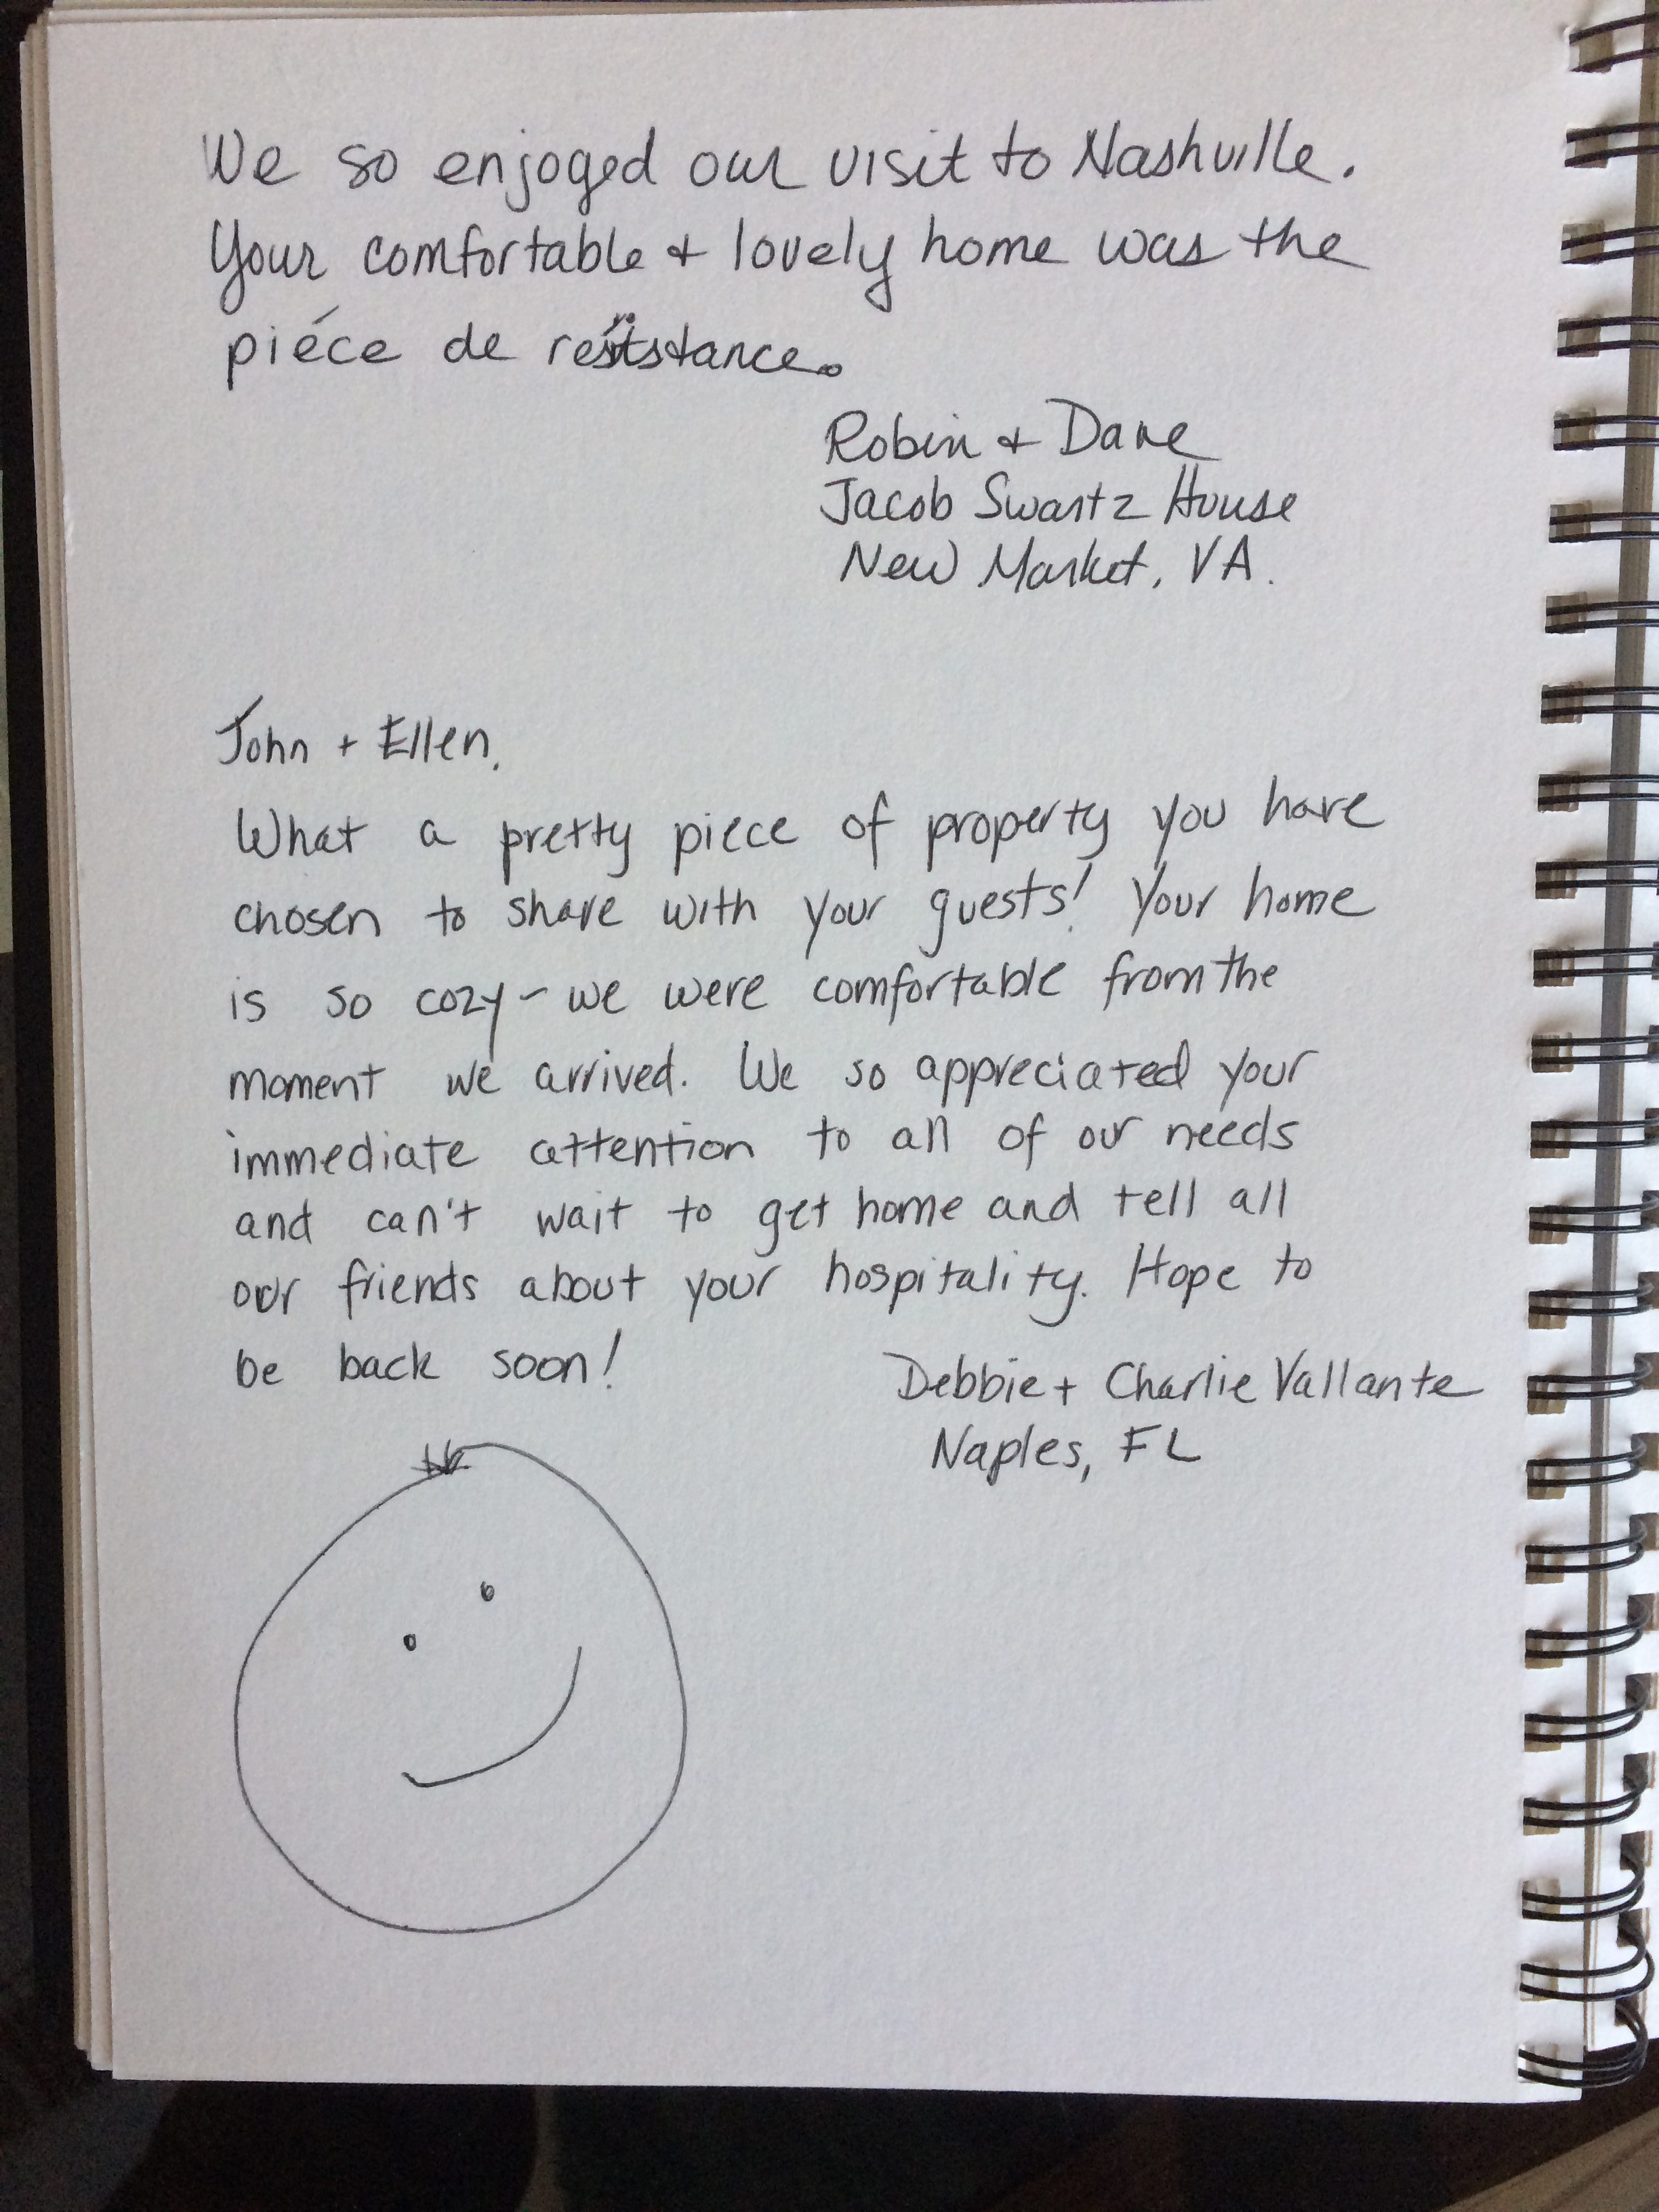 We so enjoyed our visit to Nashville.
Your comfortable + lovely home was the
piéce de resistance.
Robin + Dane
Jacob Swartz House
New Market, VA.
John + Ellen,
What a pretty piece of property you have
chosen to share with your guests! Your home
is so cozy - we were comfortable from the
moment we arrived. We so appreciated your
immediate attention to all of our needs
and can't wait to get home and tell all
our friends about your hospitality. Hope to
be back soon!
Debbie + Charlie Vallante
Naples, FL